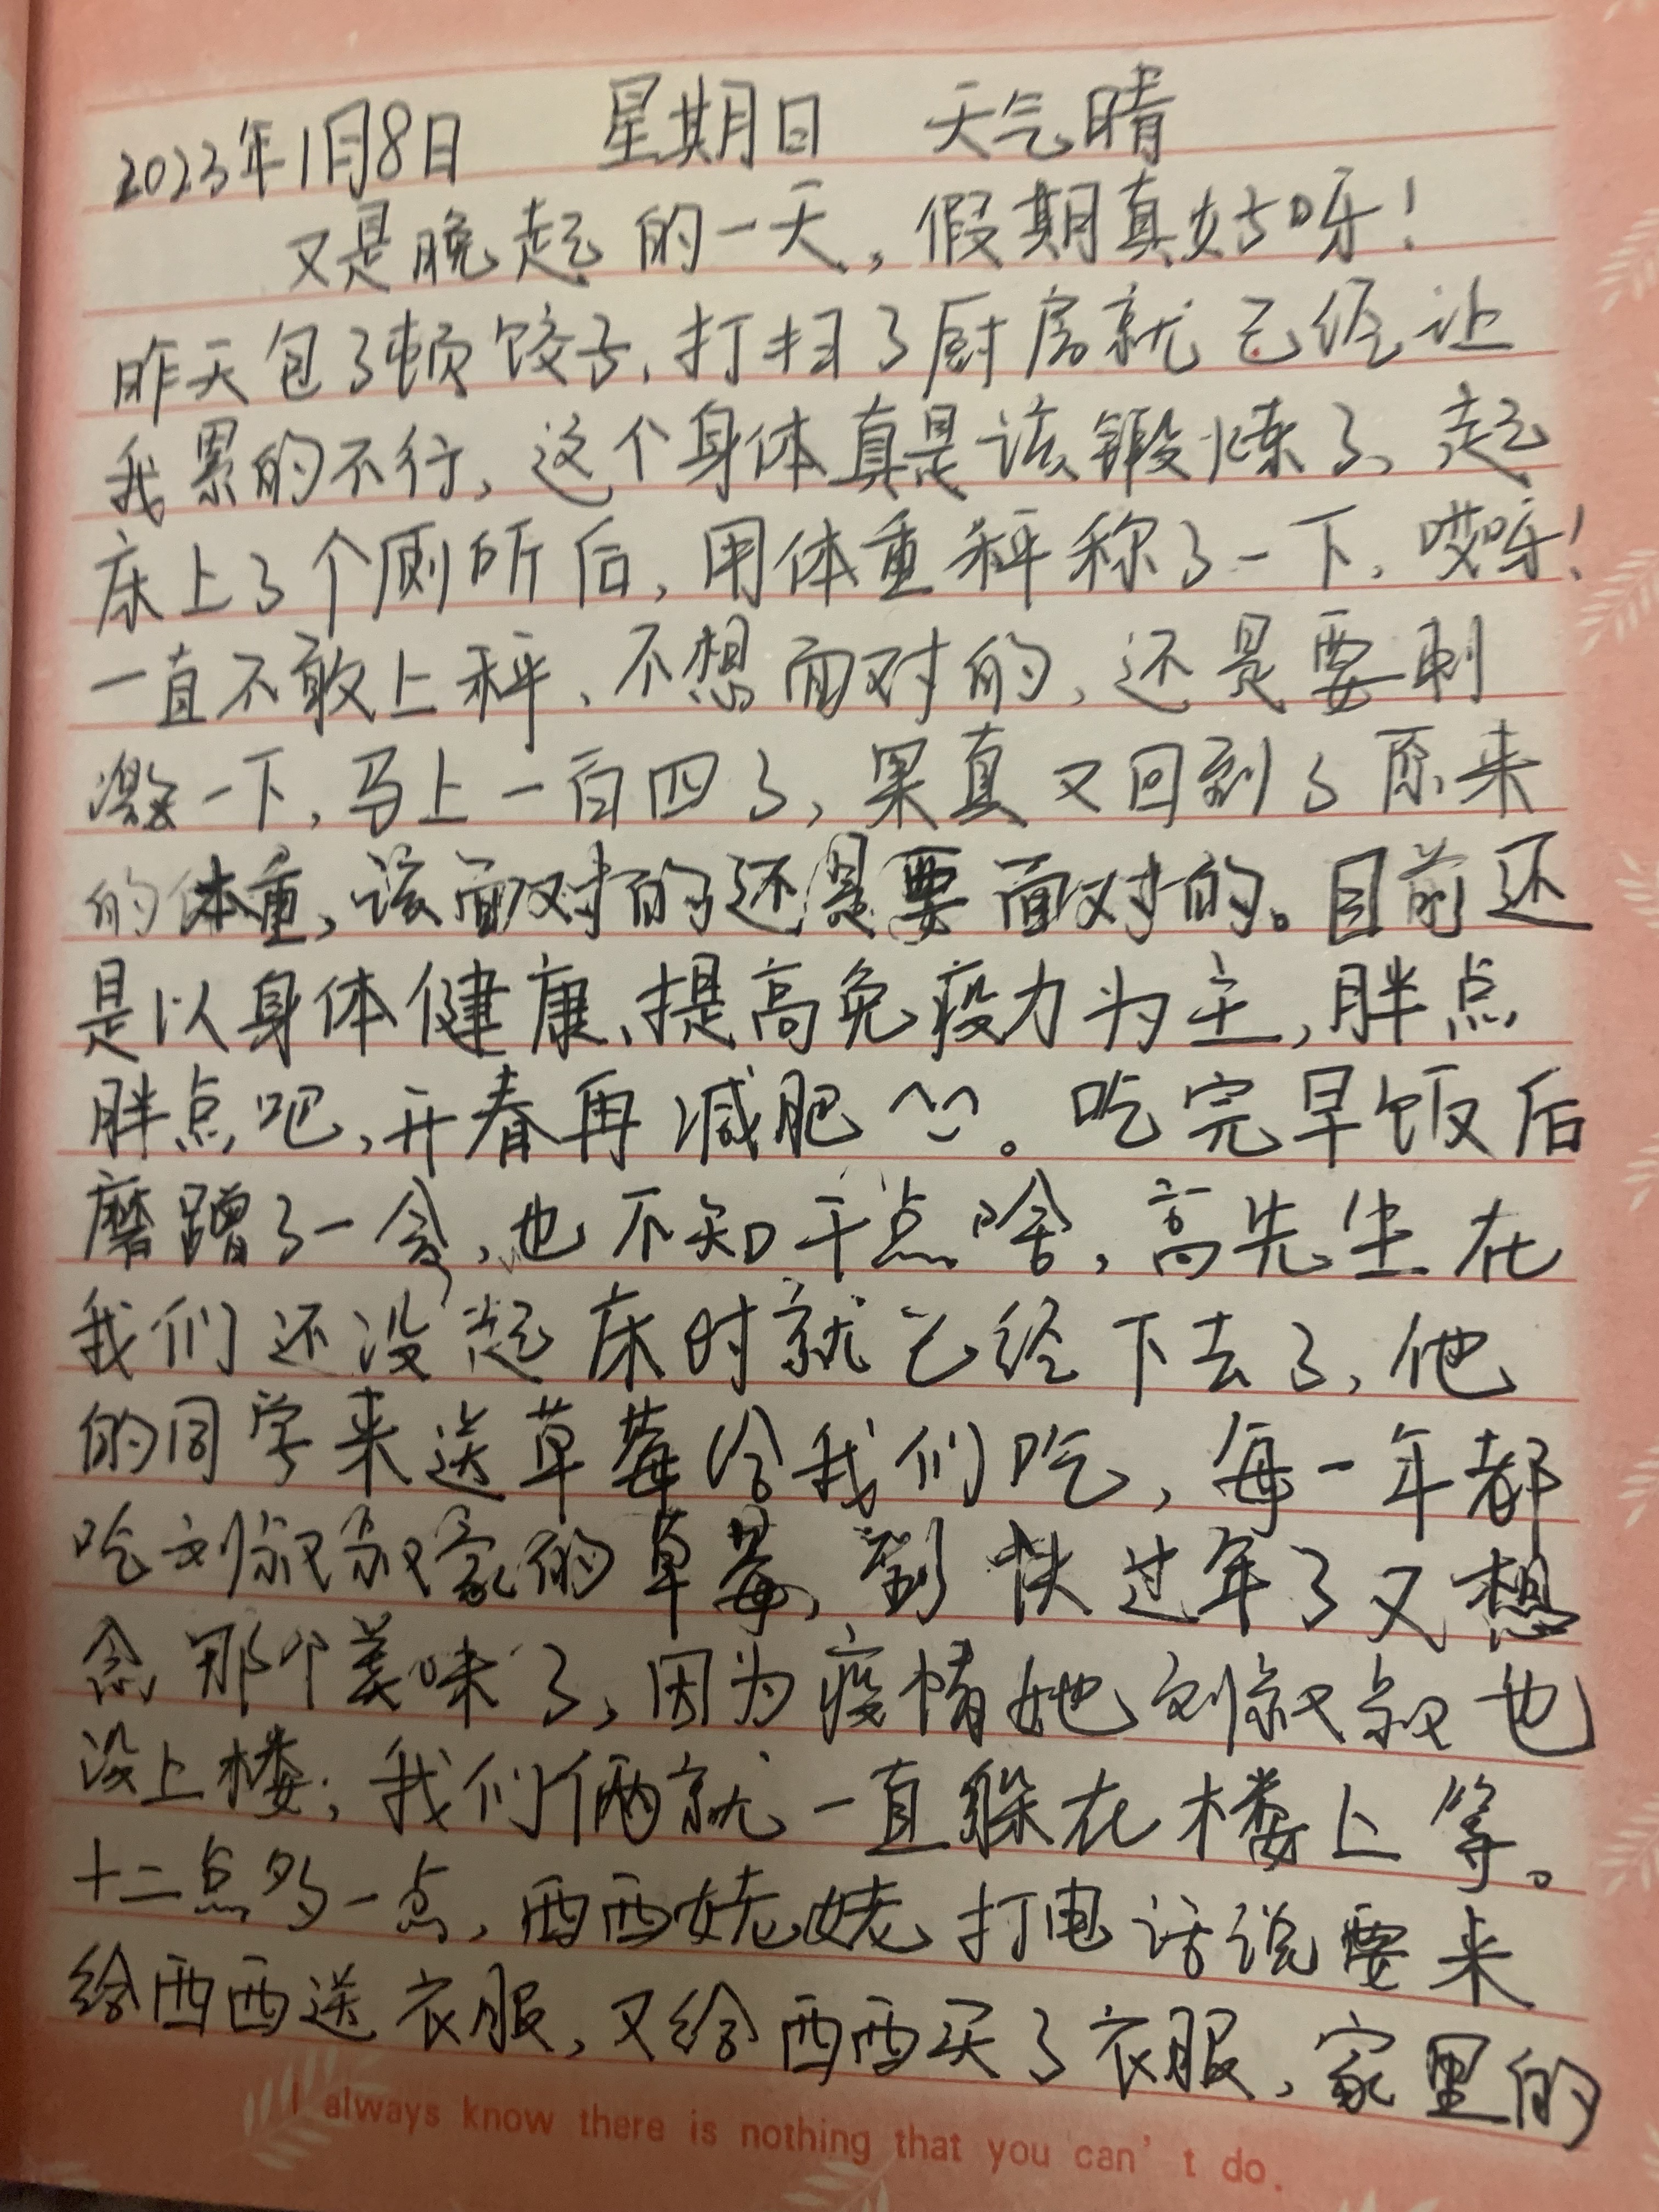 2023年1月8日 星期日 天气晴
又是晚起的一天，假期真好呀！
昨天包了顿饺子，打扫了厨房就已经让
我累的不行，这个身体真是该锻炼了、起
床上了个厕所后，用体重秤称了一下，哎呀！
一直不敢上秤、不想面对的，还是要刺
激一下，马上一百四了，果真又回到了原来
的体重，该面对的还是要面对的。目前还
是以身体健康、提高免疫力为主，胖点
胖点吧，开春再减肥^_^。吃完早饭后
磨蹭了一会，也不知干点啥，高先生在
我们还没起床时就已经下去了，他
的同学来送草莓给我们吃，每一年都
吃刘叔叔家的草莓，到快过年了又想
念那个美味了，因为疫情她刘叔叔也
没上楼；我们俩就一直躲在楼上等。
十二点多一点，西西姥姥打电话说要来
给西西送衣服，又给西西买了衣服，家里的
I always know there is nothing that you can't do.